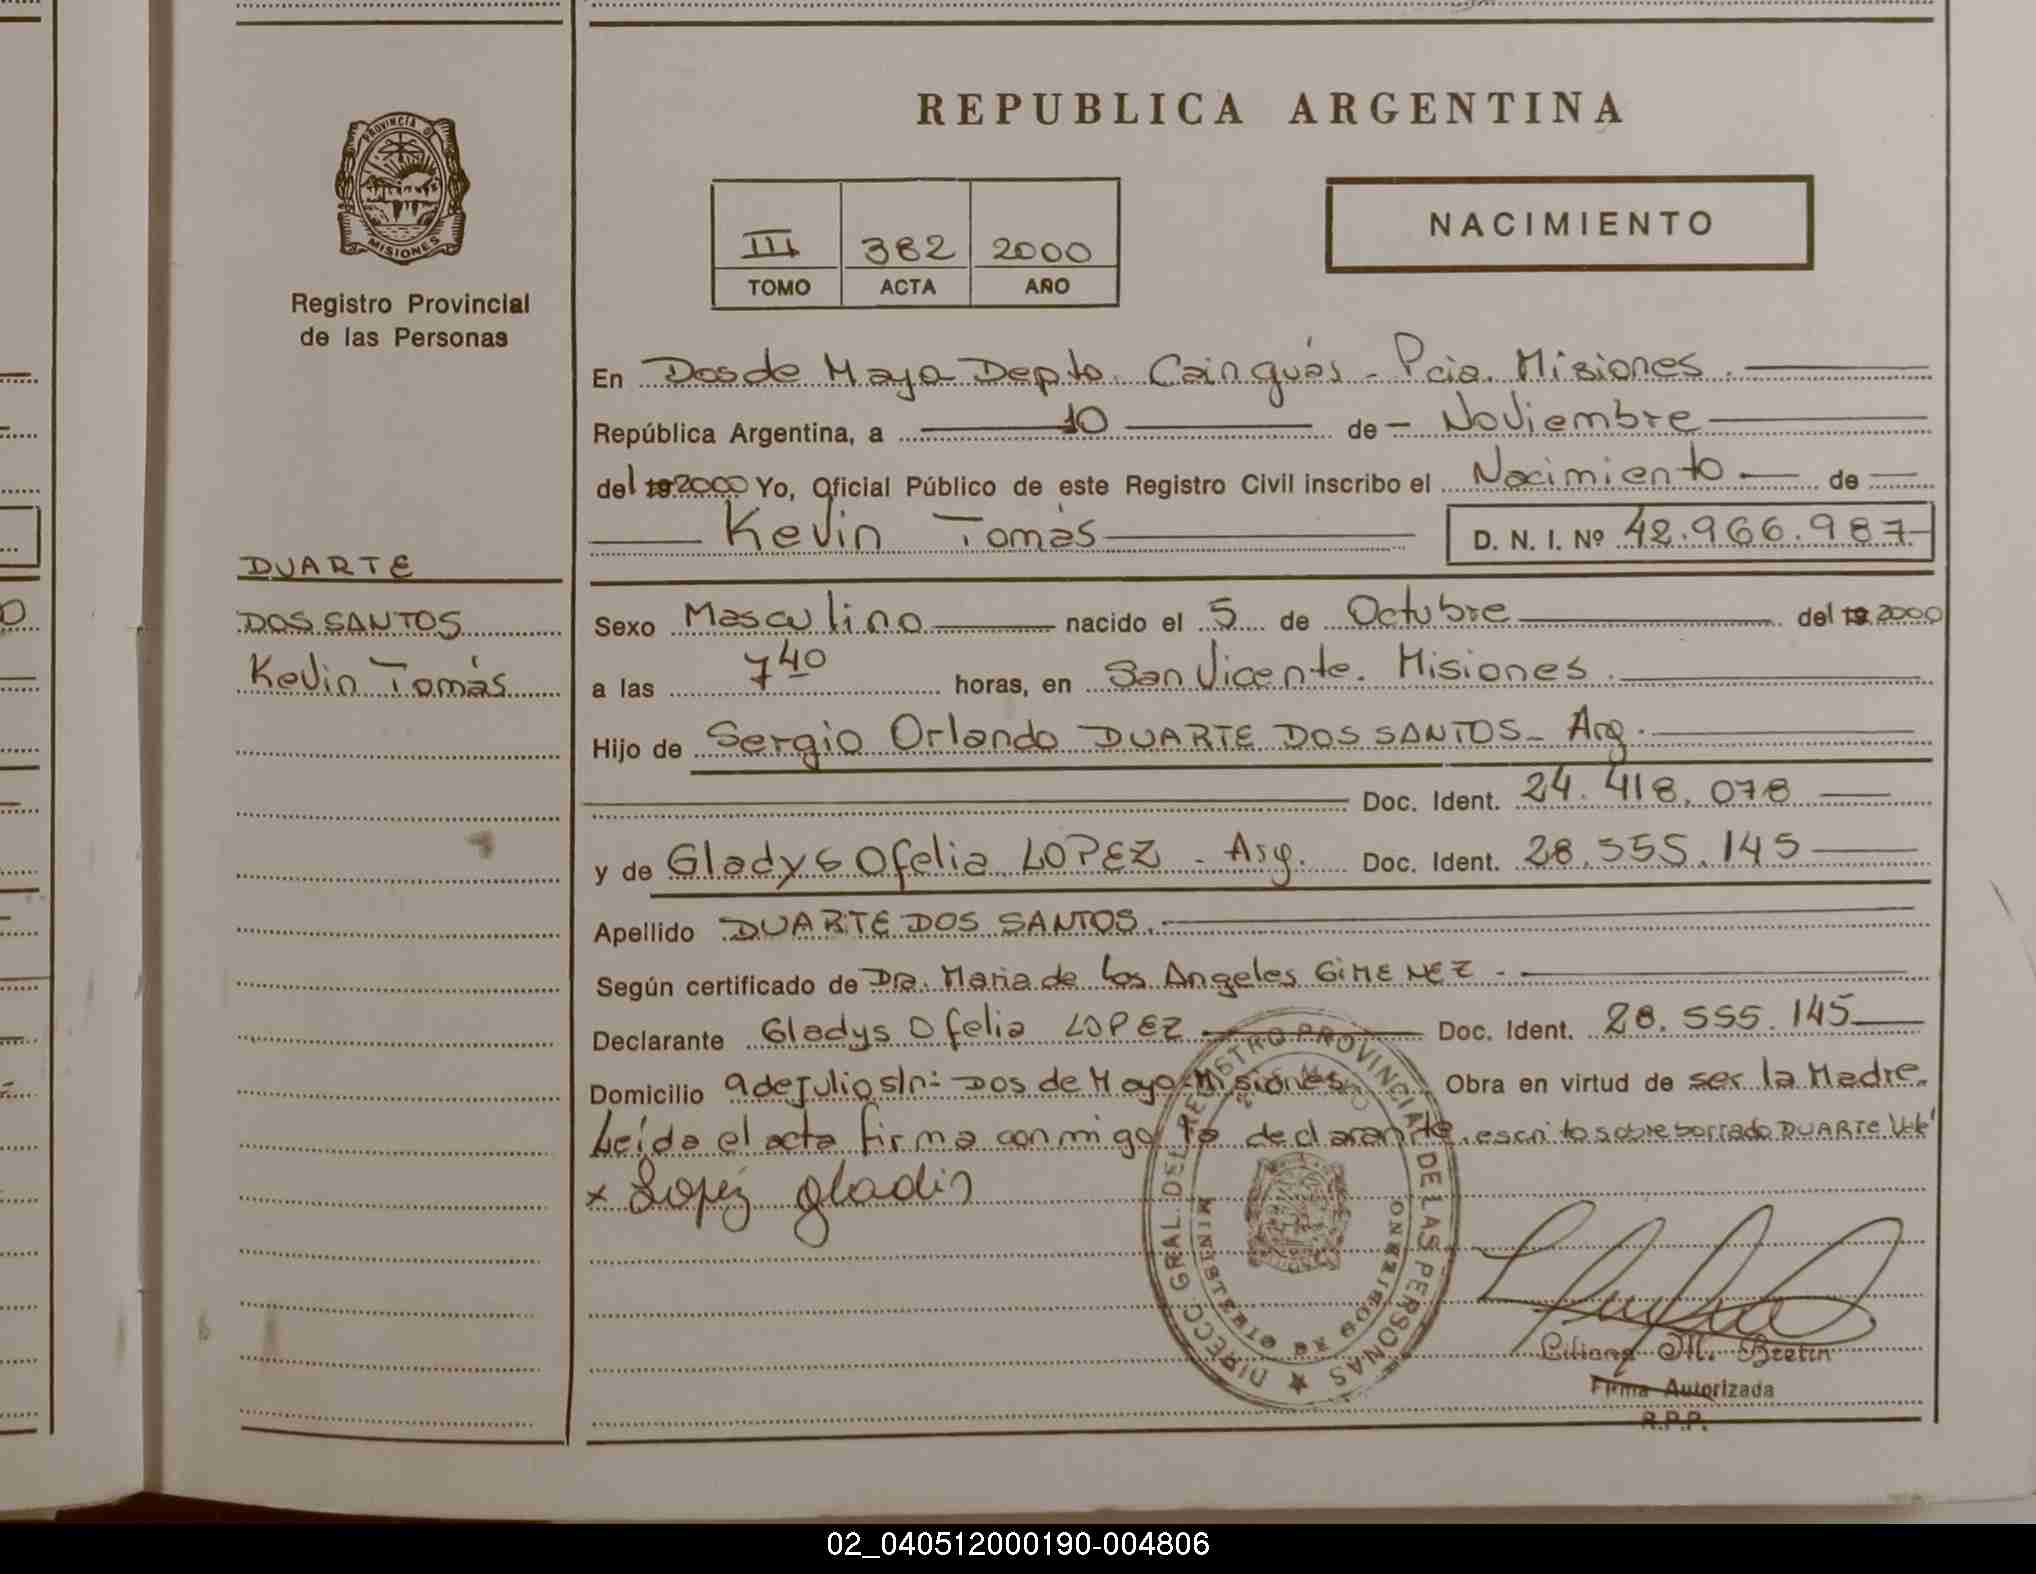 REPUBLICA ARGENTINA
PROVINCIA D
MISIONES
Registro Provincial
de las Personas
III 382 2000
TOMO ACTA AÑO
NACIMIENTO
En Dos de Mayo Depto. Cainguás - Pcia. Misiones.
República Argentina, a 10 de - Noviembre
del 19 2000 Yo, Oficial Público de este Registro Civil inscribo el Nacimiento de
Kevin Tomàs D. N. I. Nº 42.966.987
DUARTE
DOS SANTOS
Kevin Tomás
Sexo Masculino nacido el 5 de Octubre del 19 2000
a las 7 40 horas, en San Vicente. Misiones.
Hijo de Sergio Orlando DUARTE DOS SANTOS - Arg.
Doc. Ident. 24.418.078
y de Gladys Ofelia LOPEZ - Arg. Doc. Ident. 28.555.145
Apellido DUARTE DOS SANTOS.
Según certificado de Dra. Maria de los Angeles GIMENEZ -
Declarante Gladys Ofelia LOPEZ Doc. Ident. 28.555.145
Domicilio 9 de Julio s/n: Dos de Mayo-Misiones Obra en virtud de ser la Madre.
Leída el acta firma conmigo la declarante. escrito sobre borrado DUARTE Vale
x Lopez gladis
DIRECC. GRAL. DEL REGISTRO PROVINCIAL DE LAS PERSONAS
MINISTERIO DE GOBIERNO
Liliana M. Bretin
Firma Autorizada
R.P.P.
02_040512000190-004806